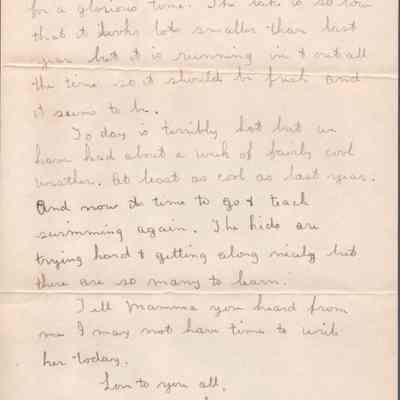 for a glorious time. The lake is so low
that it looks lots smaller than last
year but it is running in & out all
the time so it should be fresh and
it seems to be.
Today is terribly hot but we
have had about a week of fairly cool
weather. At least as cool as last year.
And now its time to go & teach
swimming again. The kids are
trying hard & getting along nicely but
there are so many to learn.
Tell Mamma you heard from
me I may not have time to write
her today.
Love to you all.